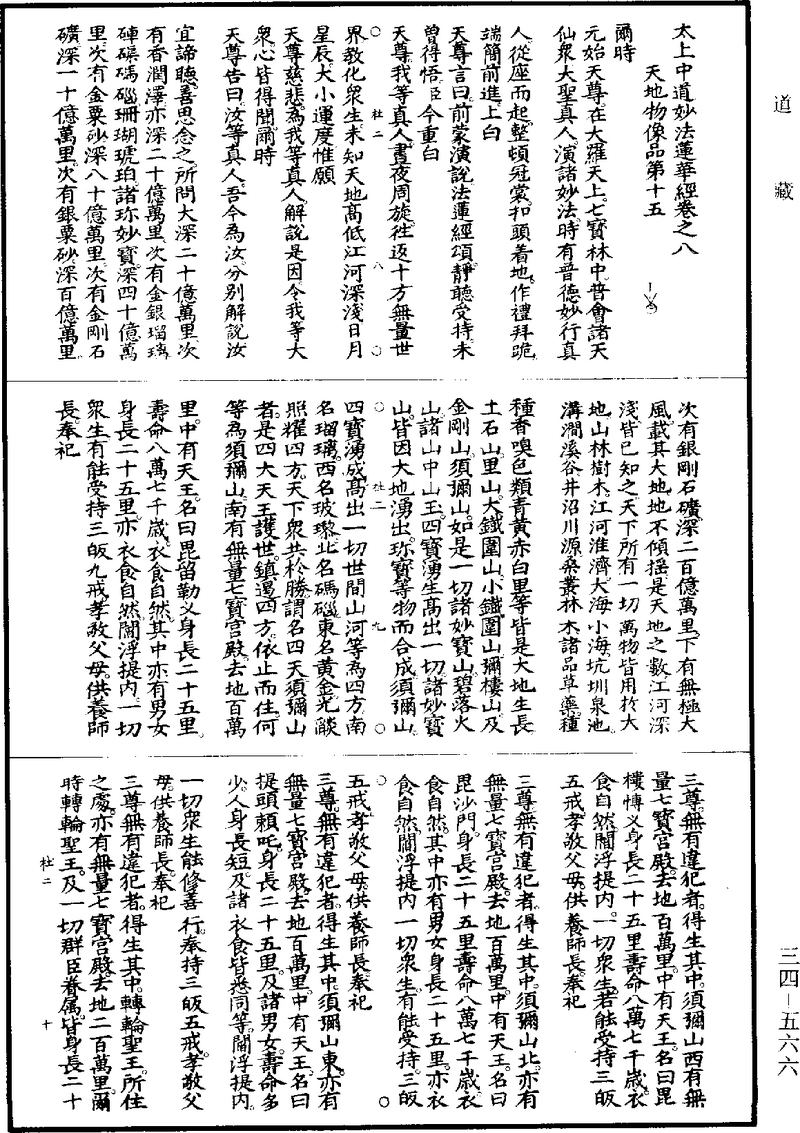 道藏
太上中道妙法蓮華經卷之八
天地物像品第十五
爾時
元始天尊在大羅天上七寶林中普會諸天
仙衆大聖真人演諸妙法時有普德妙行真
人從座而起整頓冠裳扣頭着地作禮拜跪
端簡前進上白
天尊言曰前蒙演說法蓮經頌靜聽受持未
曾得悟臣今重白
天尊我等真人晝夜周旋往返十方無量世
杜二 八
界教化衆生未知天地髙低江河深淺日月
星辰大小運度惟願
天尊慈悲為我等真人解說是因令我等大
衆心皆得聞爾時
天尊告曰汝等真人吾今為汝分别解說汝
宜諦聽善思念之所問大深二十億萬里次
有香潤澤亦深二十億萬里次有金銀瑠璃
硨磲碼碯珊瑚琥珀諸珎妙寶深四十億萬
里次有金粟砂深八十億萬里次有金剛石
礦深一十億萬里次有銀粟砂深百億萬里
次有銀剛石礦深二百億萬里下有無極大
風載其大地地不傾摇是天地之數江河深
淺皆已知之天下所有一切萬物皆用於大
地山林樹木江河淮濟大海小海坑圳泉池
溝澗溪谷井沼川源桑叢林木諸品草藥種
種香嗅色類青黄赤白里等皆是大地生長
土石山里山大鐵圍山小鐵圍山彌樓山及
金剛山須彌山如是一切諸妙寶山碧落火
山諸山中山王四寶湧生髙出一切諸妙寶
山皆因大地湧出珎寶等物而合成須彌山
杜二 九
四寶湧成髙出一切世間山河等為四方南
名瑠璃西名玻瓈北名碼碯東名黄金光燄
照耀四方天下衆共於勝謂名四天須彌山
者是四大天王護世鎮邊四方依止而住何
等為須彌山南有無量七寶宫殿去地百萬
里中有天王名曰毘留勒义身長二十五里
壽命八萬七千歲衣食自然其中亦有男女
身長二十五里亦衣食自然閻浮提内一切
衆生有能受持三皈九戒孝敬父母供養師
長奉祀
三尊無有違犯者得生其中須彌山西有無
量七寶宫殿去地百萬里中有天王名曰毘
樓慱义身長二十五里壽命八萬七千歲衣
食自然閻浮提内一切衆生若能受持三皈
五戒孝敬父母供養師長奉祀
三尊無有違犯者得生其中須彌山北亦有
無量七寶宫殿去地百萬里中有天王名曰
毘沙門身長二十五里壽命八萬七千歲衣
食自然其中亦有男女身長二十五里亦衣
食自然閻浮提内一切衆生有能受持三皈
五戒孝敬父母供養師長奉祀
三尊無有違犯者得生其中須彌山東亦有
無量七寶宫殿去地百萬里中有天王名曰
提頭賴吒身長二十五里及諸男女壽命多
少人身長短及諸衣食皆悉同等閻浮提内
一切衆生能修善行奉持三皈五戒孝敬父
母供養師長奉祀
三尊無有違犯者得生其中轉輪聖王所住
之處亦有無量七寶宫殿去地二百萬里爾
時轉輪聖王及一切群臣眷属皆身長二十
杜二 十
三四－五六六